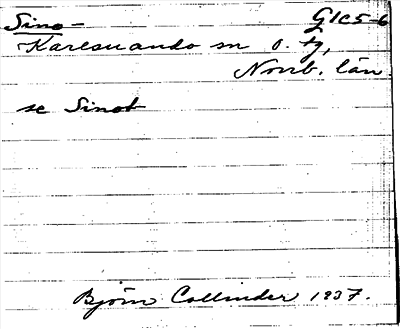 Sino- G1C5-6
Karesuando sn o. tg,
Norrb. län
se Sinot
Björn Collinder 1937.